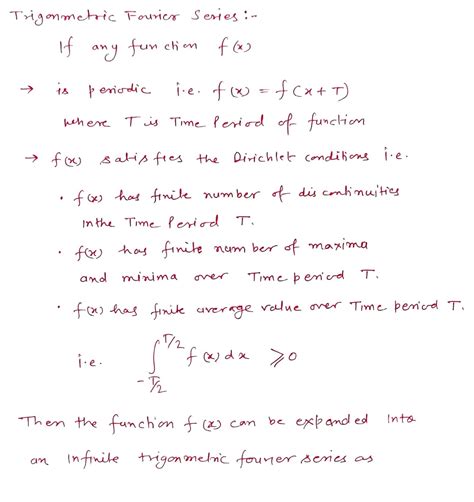 Trigonmetric Fourier Series :-
If any function f(x)
→ is periodic i.e. f(x) = f(x+T)
where T is Time Period of function
→ f(x) satisfies the Dirichlet conditions i.e.
• f(x) has finite number of discontinuities
in the Time Period T.
• f(x) has finite number of maxima
and minima over Time period T.
• f(x) has finite average value over Time period T.
i.e. ∫_{-T/2}^{T/2} f(x) dx ⩾ 0
Then the function f(x) can be expanded into
an infinite trigonmetric fourier series as